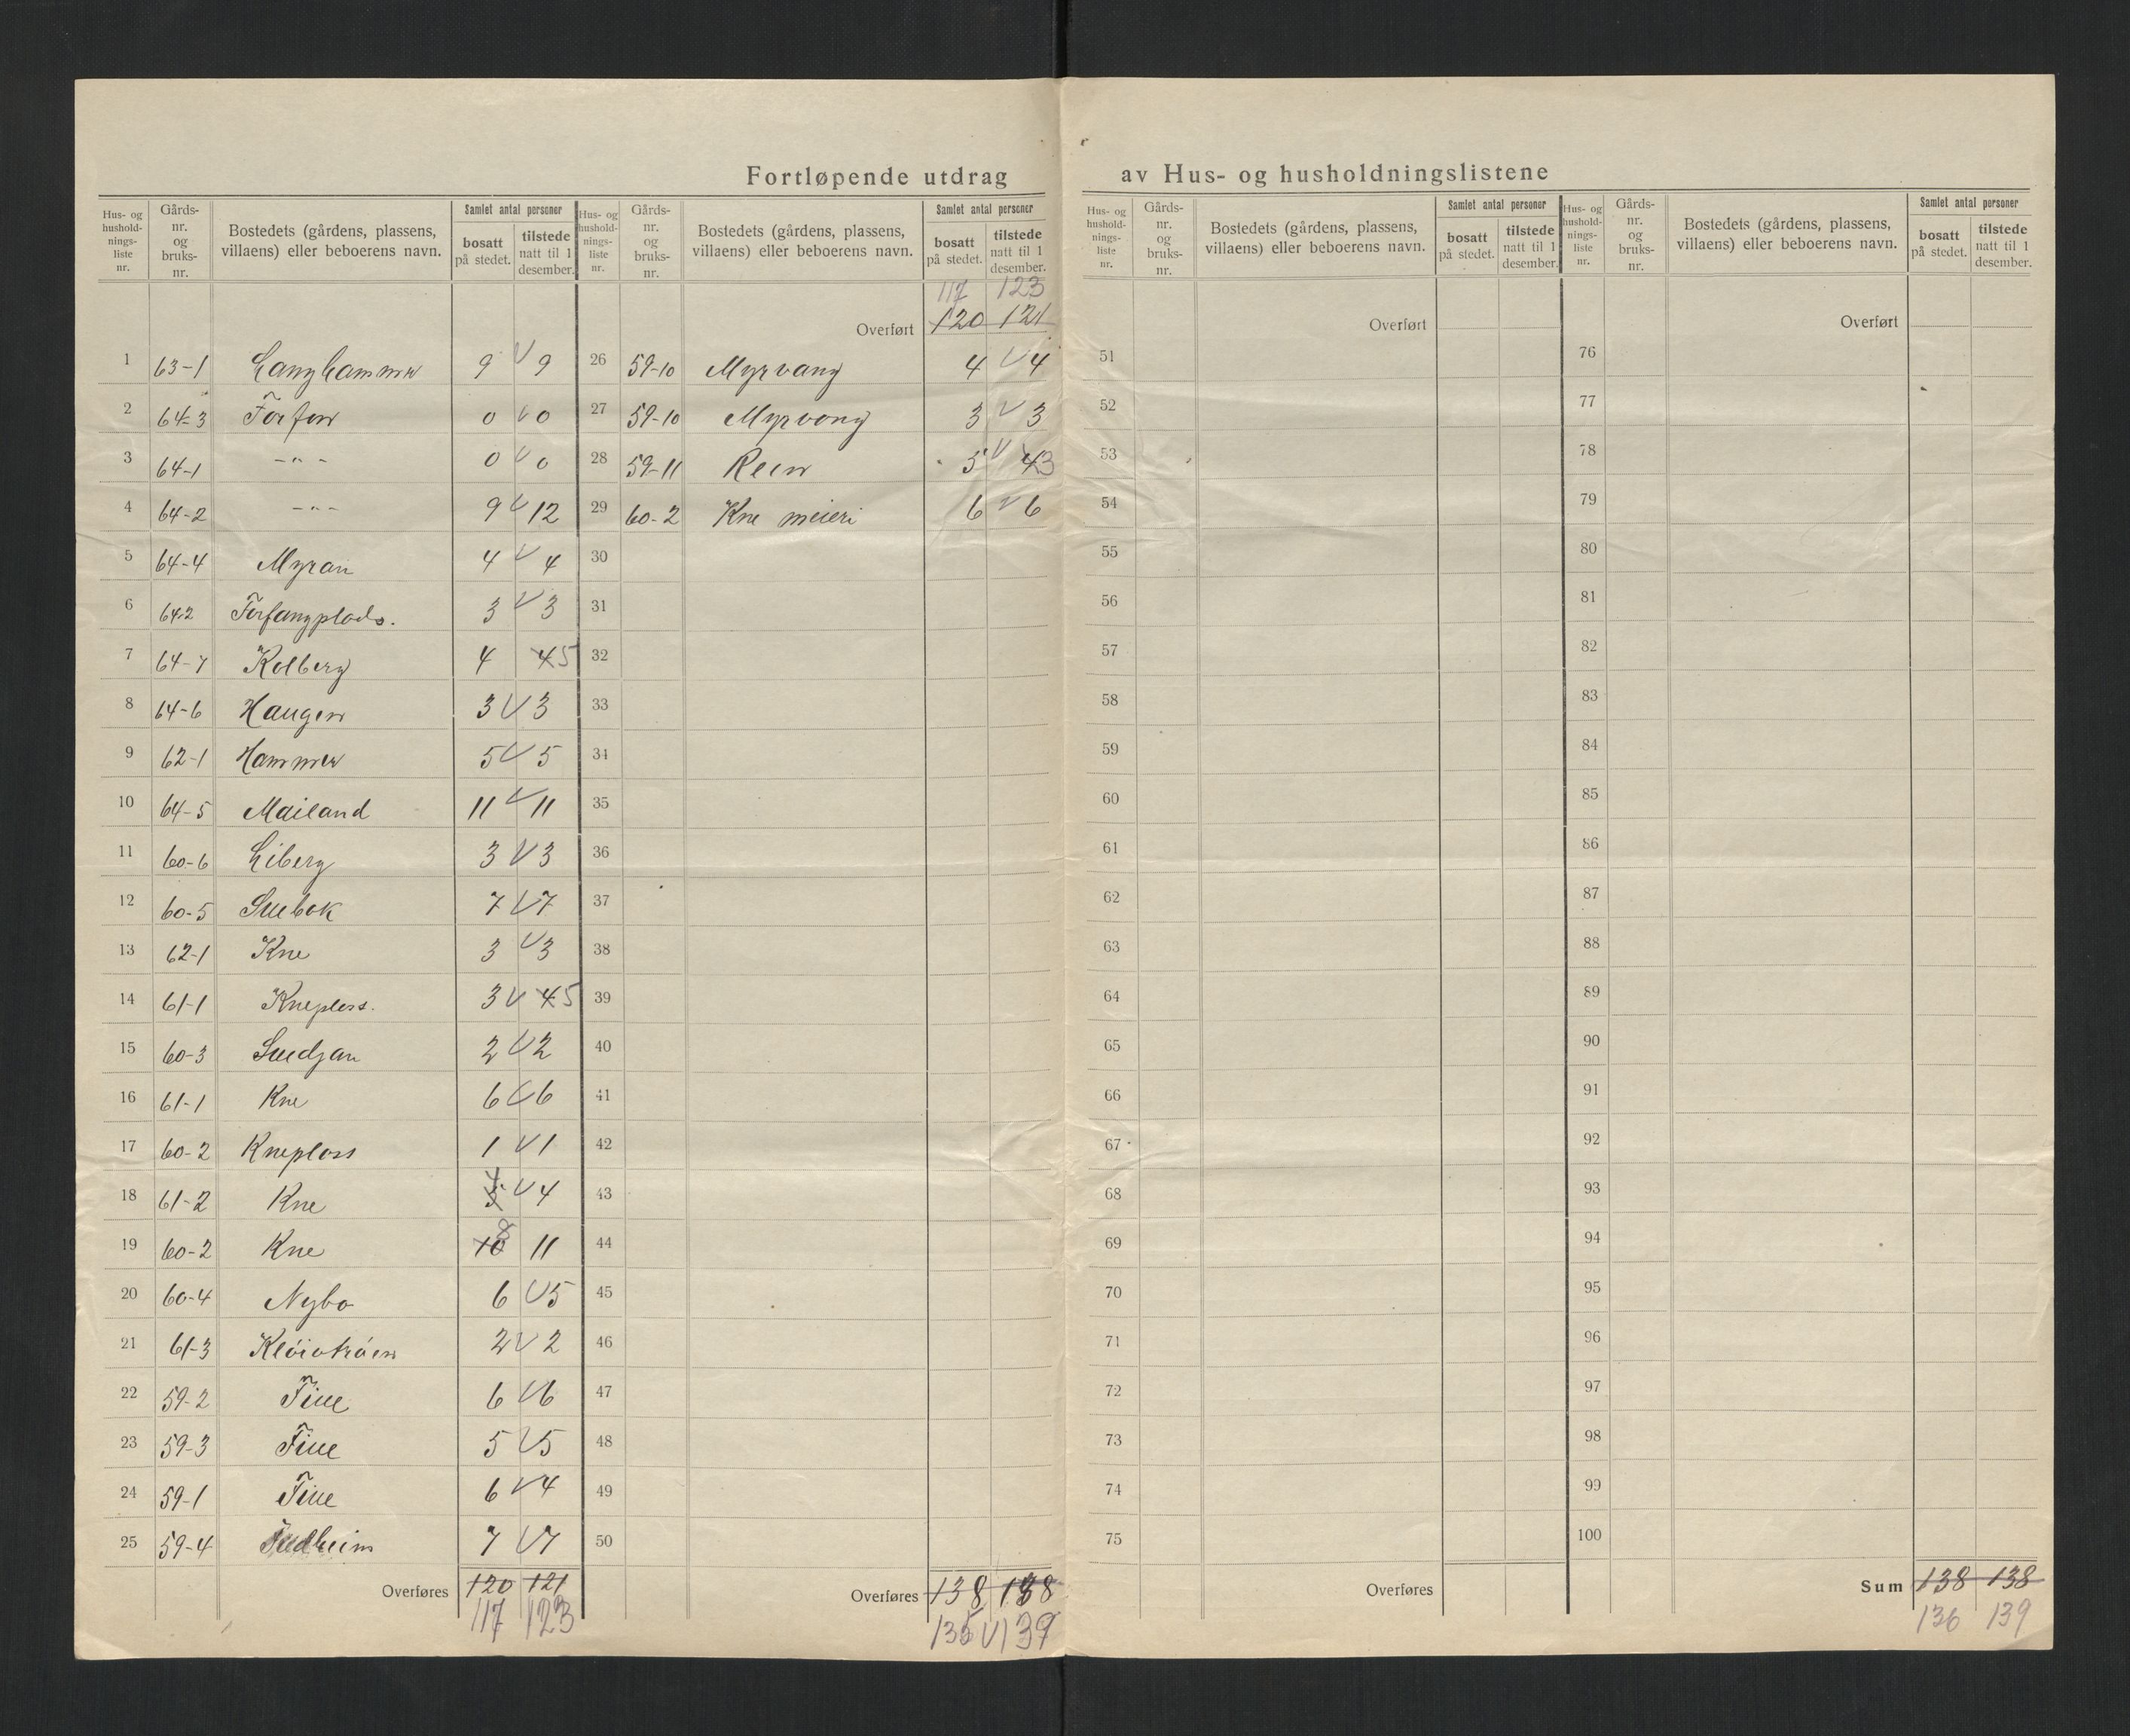 Fortløpende utdrag av Hus- og husholdningslistene
Hus- og husholdningsliste nr. Gårdsnr. og bruksnr. Bostedets (gårdens, plassens, villaens) eller beboerens navn. Samlet antal personer bosatt på stedet. tilstede natt til 1 desember.
1 63-1 Langhammer 9 V 9
2 64-3 Forfon 0 V 0
3 64-1 -"- 0 V 0
4 64-2 -"- 9 V 12
5 64-4 Myran 4 V 4
6 64-2 Forfangplads. 3 V 3
7 64-7 Kolberg 4 4 5
8 64-6 Haugen 3 V 3
9 62-1 Hammer 5 V 5
10 64-5 Mailand 11 V 11
11 60-6 Liberg 3 V 3
12 60-5 7 V 7
13 62-1 Kne 3 V 3
14 61-1 Kneplass. 3 V 4 5
15 60-3 2 V 2
16 61-1 Kne 6 V 6
17 60-2 Kneplass 1 V 1
18 61-2 Kne 5 4 V 4
19 60-2 Kne 10 8 11
20 60-4 Nybo 6 V 5
21 61-3 2 V 2
22 59-2 Five 6 V 6
23 59-3 Five 5 V 5
24 59-1 Five 6 V 4
25 59-4 7 V 7
Overføres 120 121
117 123
Hus- og husholdningsliste nr. Gårdsnr. og bruksnr. Bostedets (gårdens, plassens, villaens) eller beboerens navn. Samlet antal personer bosatt på stedet. tilstede natt til 1 desember.
117 123
Overført 120 121
26 59-10 Myrvang 4 V 4
27 59-10 Myrvong 3 V 3
28 59-11 Reen 5 V 4 3
29 60-2 Kne meieri 6 V 6
30
31
32
33
34
35
36
37
38
39
40
41
42
43
44
45
46
47
48
49
50
Overføres 138 138
135 V 139
Hus- og husholdningsliste nr. Gårdsnr. og bruksnr. Bostedets (gårdens, plassens, villaens) eller beboerens navn. Samlet antal personer bosatt på stedet. tilstede natt til 1 desember.
Overført
51
52
53
54
55
56
57
58
59
60
61
62
63
64
65
66
67
68
69
70
71
72
73
74
75
Overføres
Hus- og husholdningsliste nr. Gårdsnr. og bruksnr. Bostedets (gårdens, plassens, villaens) eller beboerens navn. Samlet antal personer bosatt på stedet. tilstede natt til 1 desember.
Overført
76
77
78
79
80
81
82
83
84
85
86
87
88
89
90
91
92
93
94
95
96
97
98
99
100
Sum 138 138
136 139